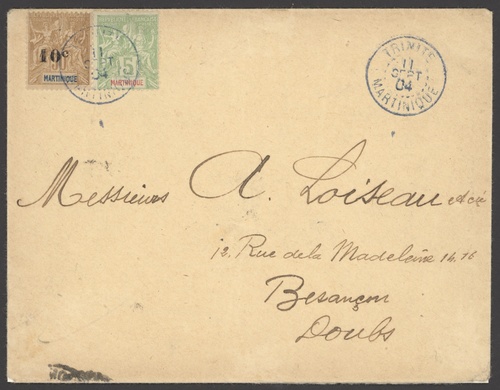 10c
MARTINIQUE
5
MARTINIQUE
11
SEPT
04
TRINITÉ
11
SEPT
04
MARTINIQUE
Messieurs A. Loiseau et Cie
12. Rue de la Madeleine 14.16
Besançon
Doubs